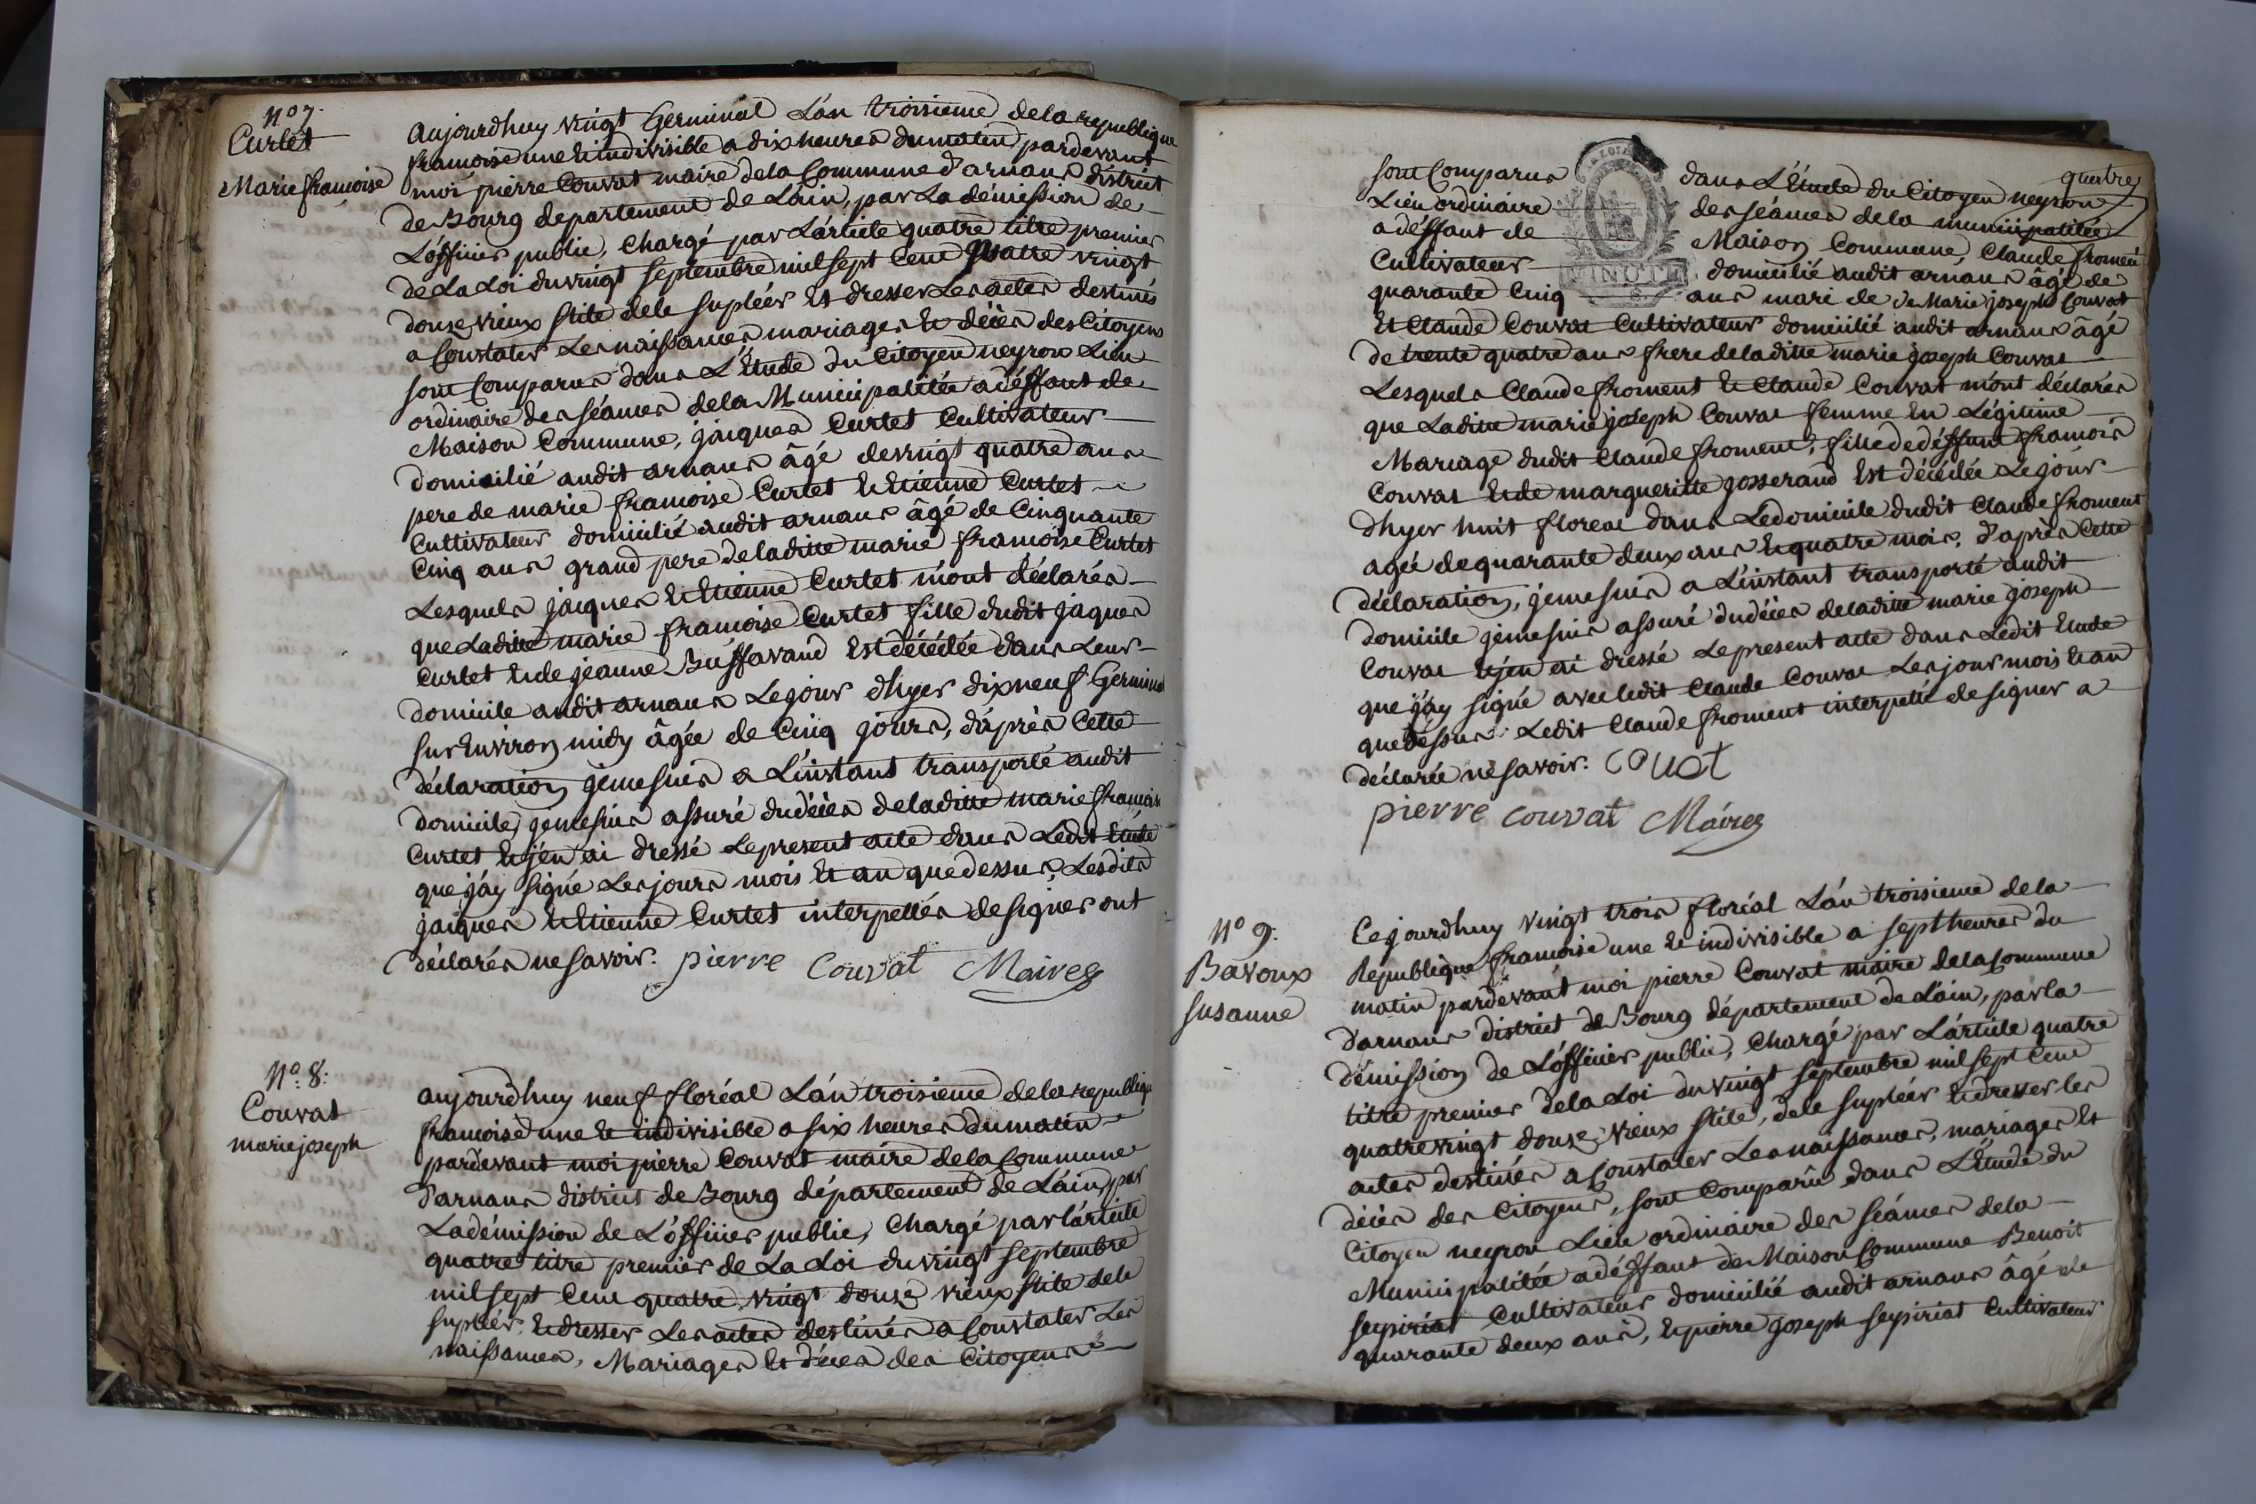 No 7.
Curtet
Marie francoise
aujourdhuy vingt Germinal L'an troisieme de la republique
francoise une et indivisible a dix heures du matin pardevant
moi pierre Couvat maire de la Commune d'arnans district
de Bourg departement de L'ain, par La démission de
L'officier public, Chargé par L'article quatre titre premier
de La Loi du vingt septembre mil sept Cent quatre vingt
douze vieux stile de le supléer et dresser Les actes destinés
a Constater Les naissances, mariages et décès des Citoyens
sont Comparus dans L'Etude du Citoyen neyron Lieu
ordinaire des séances de la Municipalitée a déffaut de
Maison Commune, jaiques Curtet Cultivateur
domicilié audit arnans âgé de vingt quatre ans
pere de marie francoise Curtet et Etienne Curtet
Cultivateur domicilié audit arnans âgé de Cinquante
Cinq ans grand pere de laditte marie francoise Curtet
Lesquels jaiques et Etienne Curtet m'ont déclarés
que Laditte marie francoise Curtet fille dudit jaques
Curtet et de jeanne Buffavand Est décédée dans Leur
domicile audit arnans Le jour d'hyer dix neuf Germinal
sur Environ midy âgée de Cinq jours, d'après Cette
déclaration je me suis a L'instant transporté audit
domicile je me suis assuré du décès de laditte marie francoise
Curtet et j'en ai dressé Le present acte dans Ledit Etude
que j'ay signé Les jours mois et an que dessus, Lesdits
jaiques et Etienne Curtet interpellés de signer ont
déclarés ne savoir. pierre Couvat Maire
No. 8:
Couvat
marie joseph
aujourdhuy neuf floréal L'an troisieme de la republique
francoise une et indivisible a six heures du matin
pardevant moi pierre Couvat maire de la Commune
d'arnans district de Bourg département de L'ain, par
La démission de L'officier public, Chargé par l'article
quatre titre premier de La Loi du vingt septembre
mil sept Cent quatre vingt douze vieux stile de le
supléer et dresser Les actes destinés a Constater Les
naissances, Mariages et décès des Citoyens
quatre
sont Comparus dans L'Etude du Citoyen neyron
Lieu ordinaire des séances de la municipalitée
a déffaut de Maison Commune, Claude froment
Cultivateur domicilié audit arnans âgé de
quarante Cinq ans mari de Marie joseph Couvat
MINUTE
et Claude Couvat Cultivateur domicilié audit arnans âgé
de trente quatre ans frere de laditte marie joseph Couvat
Lesquels Claude froment et Claude Couvat m'ont déclarés
que Laditte marie joseph Couvat femme En Légitime
Mariage dudit Claude froment, fille de déffunt francois
Couvat et de margueritte josserand Est décédée Le jour
d'hyer huit floreal dans Le domicile dudit Claude froment
agée de quarante deux ans et quatre mois, d'après Cette
déclaration, je me suis a L'instant transporté audit
domicile je me suis assuré du décès de laditte marie joseph
Couvat et j'en ai dressé Le present acte dans Ledit Etude
que j'ay signé avec ledit Claude Couvat Les jour mois et an
que dessus. Ledit Claude froment interpellé de signer a
déclarée ne savoir. Couat
pierre couvat Maire
No 9:
Bavoux
susanne
Cejourdhuy vingt trois floréal L'an troisieme de la
Republique francoise une et indivisible a sept heures du
matin pardevant moi pierre Couvat maire de la Commune
d'arnans district de Bourg département de L'ain, par la
démission de L'officier public, Chargé par L'article quatre
titre premier de la Loi du vingt septembre mil sept Cent
quatre vingt douze, vieux stile, de le supléer et dresser les
actes destinés a Constater Les naissances, mariages et
décès des Citoyens, sont Comparû dans L'Etude du
Citoyen neyron Lieu ordinaire des séances de la
Municipalitée a déffaut de Maison Commune Benoit
sepiriat Cultivateur domicilié audit arnans âgé de
quarante deux ans, et pierre joseph sepiriat Cultivateur